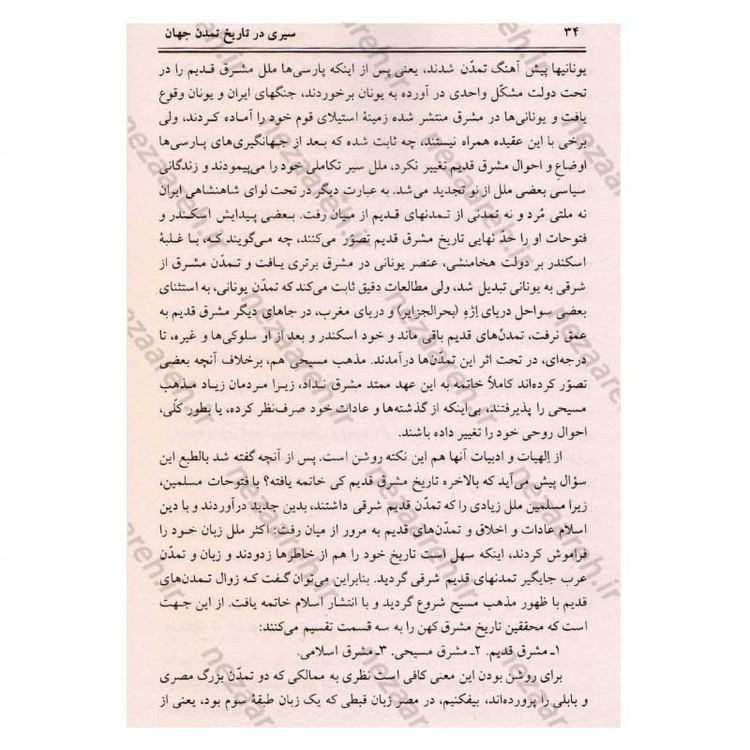 ۳۴ سیری در تاریخ تمدن جهان
یونانیها پیش آهنگ تمدّن شدند، یعنی پس از اینکه پارسی‌ها ملل مشرق قدیم را در
تحت دولت مشکّل واحدی در آورده به یونان برخوردند، جنگهای ایران و یونان وقوع
یافت و یونانی‌ها در مشرق منتشر شده زمینهٔ استیلای قوم خود را آماده کردند، ولی
برخی با این عقیده همراه نیستند، چه ثابت شده که بعد از جهانگیری‌های پارسی‌ها
اوضاع و احوال مشرق قدیم تغییر نکرد، ملل سیر تکاملی خود را می‌پیمودند و زندگانی
سیاسی بعضی ملل از نو تجدید می‌شد. به عبارت دیگر در تحت لوای شاهنشاهی ایران
نه ملتی مُرد و نه تمدنی از تمدنهای قدیم از میان رفت. بعضی پیدایش اسکندر و
فتوحات او را حدّ نهایی تاریخ مشرق قدیم تصوّر می‌کنند، چه می‌گویند که، با غلبهٔ
اسکندر بر دولت هخامنشی، عنصر یونانی در مشرق برتری یافت و تمدّن مشرق از
شرقی به یونانی تبدیل شد، ولی مطالعات دقیق ثابت می‌کند که تمدّن یونانی، به استثنای
بعضی سواحل دریای اِژه (بحرالجزایر) و دریای مغرب، در جاهای دیگر مشرق قدیم به
عمق نرفت، تمدن‌های قدیم باقی ماند و خود اسکندر و بعد از او سلوکی‌ها و غیره، تا
درجه‌ای، در تحت اثر این تمدّن‌ها درآمدند. مذهب مسیحی هم، برخلاف آنچه بعضی
تصوّر کرده‌اند کاملاً خاتمه به این عهد ممتد مشرق نداد، زیرا مردمان زیاد مذهب
مسیحی را پذیرفتند، بی‌اینکه از گذشته‌ها و عادات خود صرف‌نظر کرده، یا بطور کلّی،
احوال روحی خود را تغییر داده باشند.
از اِلهیات و ادبیات آنها هم این نکته روشن است. پس از آنچه گفته شد بالطبع این
سؤال پیش می‌آید که بالاخره تاریخ مشرق قدیم کی خاتمه یافته؟ با فتوحات مسلمین،
زیرا مسلمین ملل زیادی را که تمدّن قدیم شرقی داشتند، بدین جدید درآوردند و با دین
اسلام عادات و اخلاق و تمدّن‌های قدیم به مرور از میان رفت: اکثر ملل زبان خود را
فراموش کردند، اینکه سهل است تاریخ خود را هم از خاطرها زدودند و زبان و تمدّن
عرب جایگیر تمدنهای قدیم شرقی گردید. بنابراین می‌توان گفت که زوال تمدن‌های
قدیم با ظهور مذهب مسیح شروع گردید و با انتشار اسلام خاتمه یافت. از این جهت
است که محققین تاریخ مشرق کهن را به سه قسمت تقسیم می‌کنند:
۱ـ مشرق قدیم. ۲ـ مشرق مسیحی. ۳ـ مشرق اسلامی.
برای روشن بودن این معنی کافی است نظری به ممالکی که دو تمدّن بزرگ مصری
و بابلی را پرورده‌اند، بیفکنیم، در مصر زبان قبطی که یک زبان طبقهٔ سوم بود، یعنی از
nezaareh.ir